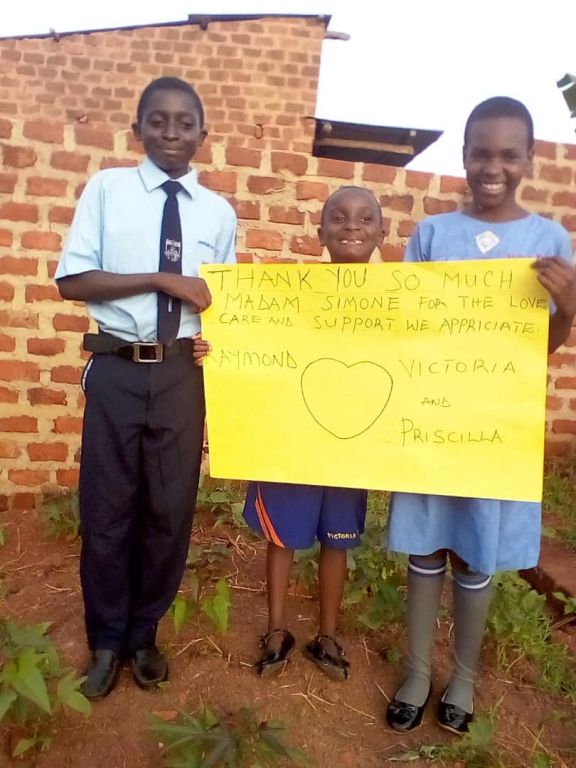 THANK YOU SO MUCH
MADAM SIMONE FOR THE LOVE
CARE AND SUPPORT WE APPRICIATE.
RAYMOND
VICTORIA
AND
PRISCILLA
VICTORIA